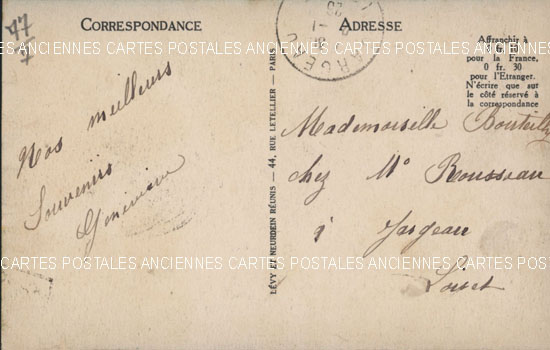 77
7
CORRESPONDANCE
ADRESSE
Affranchir à
0 fr.
pour la France,
0 fr. 30
pour l'Etranger.
N'écrire que sur
le côté réservé à
la correspondance
CARTES POSTALES ANCIENNES CARTES POSTALES ANCIENNES CARTES POSTALES
Nos meilleurs
Souvenirs
Geneviève
LÉVY ET NEURDEIN RÉUNIS — 44, RUE LETELLIER — PARIS
JARGEAU
Mademoiselle Bouteilly
chez Mr Rousseau
à Jargeau
Loiret
CARTES POSTALES ANCIENNES CARTES POSTALES ANCIENNES CARTES POSTALES